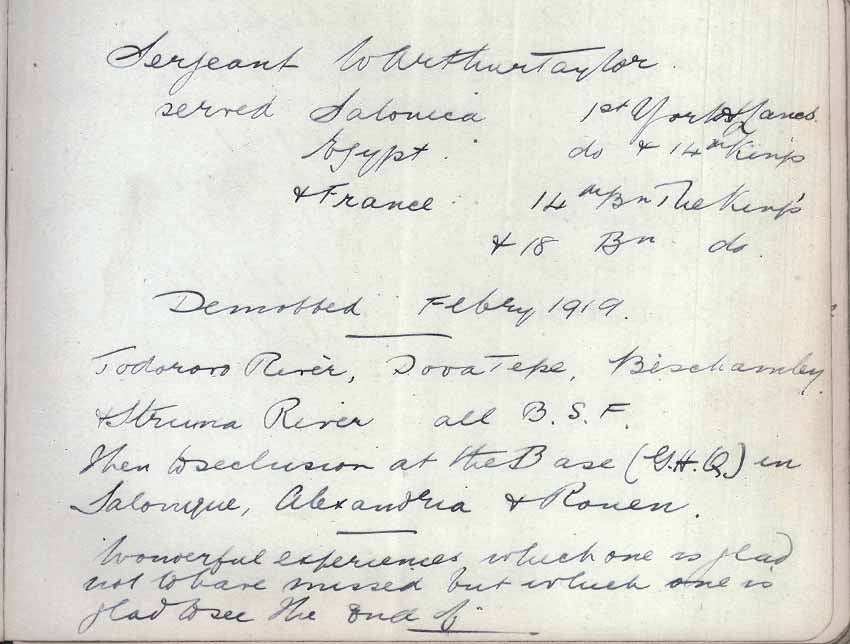 Sergeant W Arthur Taylor.
served Salonica 1st York & Lancs.
Egypt. do & 14th Kings
& France. 14th Bn The King's
& 18 Bn do.
Demobbed Febry 1919.
Todorovo River, Dova Tepe, Bischamley
& Struma River all B.S.F.
Then to seclusion at the Base (G.H.Q.) in
Salonique, Alexandria & Rouen.
Wonderful experiences which one is glad
not to have missed but which one is
glad to see the end of